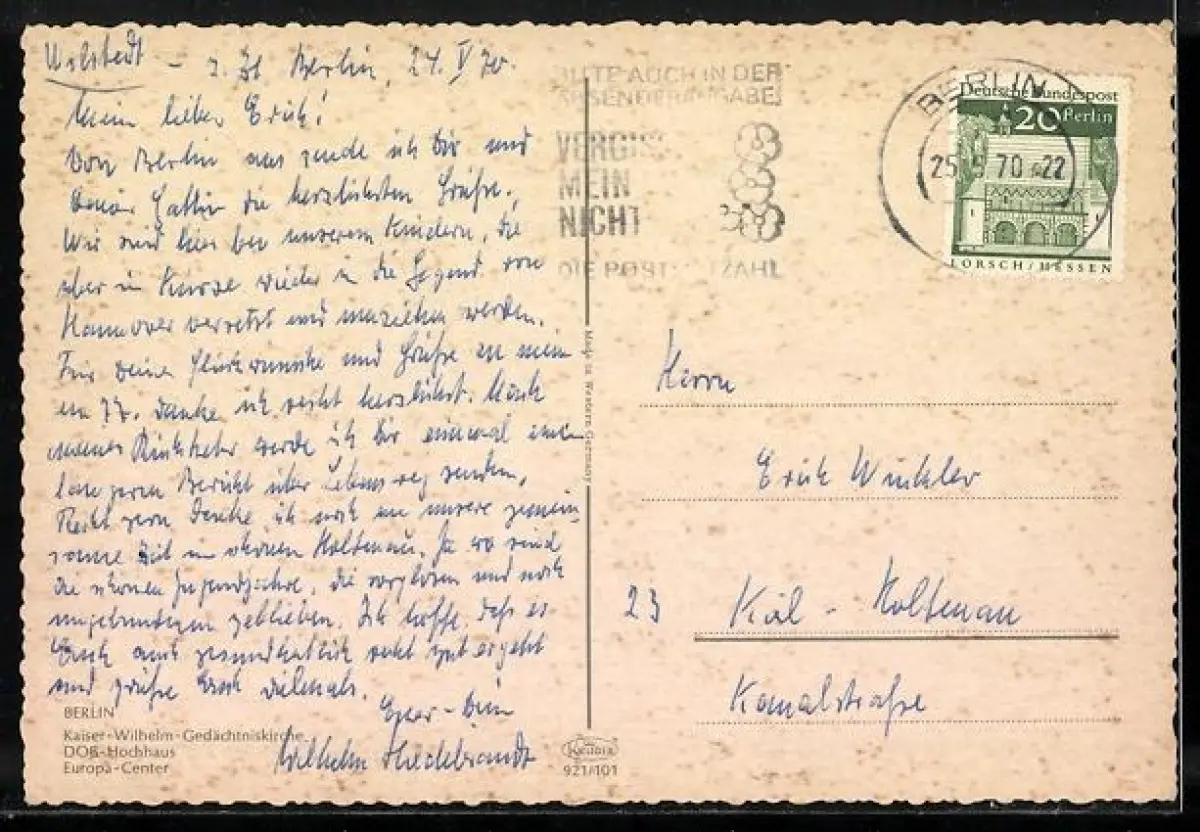 Uelstedt - z. Zt Berlin, 24. V 70.
Mein lieber Erich!
Von Berlin aus sende ich Dir und
Deiner Gattin die herzlichsten Grüße.
Wir sind hier bei unseren Kindern, die
aber in Kürze wieder in die Gegend von
Hannover versetzt und umziehen werden.
Für Deinen Glückwunsch und Grüße zu mein
em 77. danke ich recht herzlichst. Nach
meiner Rückkehr werde ich Dir einmal einen
längeren Bericht über Lebensweg senden.
Recht gern denke ich noch an unsere gemein-
same Zeit im schönen Holtenau. Ja wo sind
die schönen Jugendjahre, die sorglosen und noch
ungebundenen geblieben. Ich hoffe, daß es
Euch auch gesundheitlich recht gut ergeht
und grüße Euch vielmals.
Euer - Dein
Wilhelm Hildebrandt
BERLIN
Kaiser-Wilhelm-Gedächtniskirche
DOB-Hochhaus
Europa-Center
Made in Western Germany
Krüger
921/101
BITTE AUCH IN DER
ABSENDERANGABE!
VERGISS
MEIN
NICHT
DIE POSTLEITZAHL
BERLIN
25.5.70-22
Deutsche Bundespost
20 Berlin
LORSCH/HESSEN
Herrn
Erich Winkler
23 Kiel - Holtenau
Kanalstraße